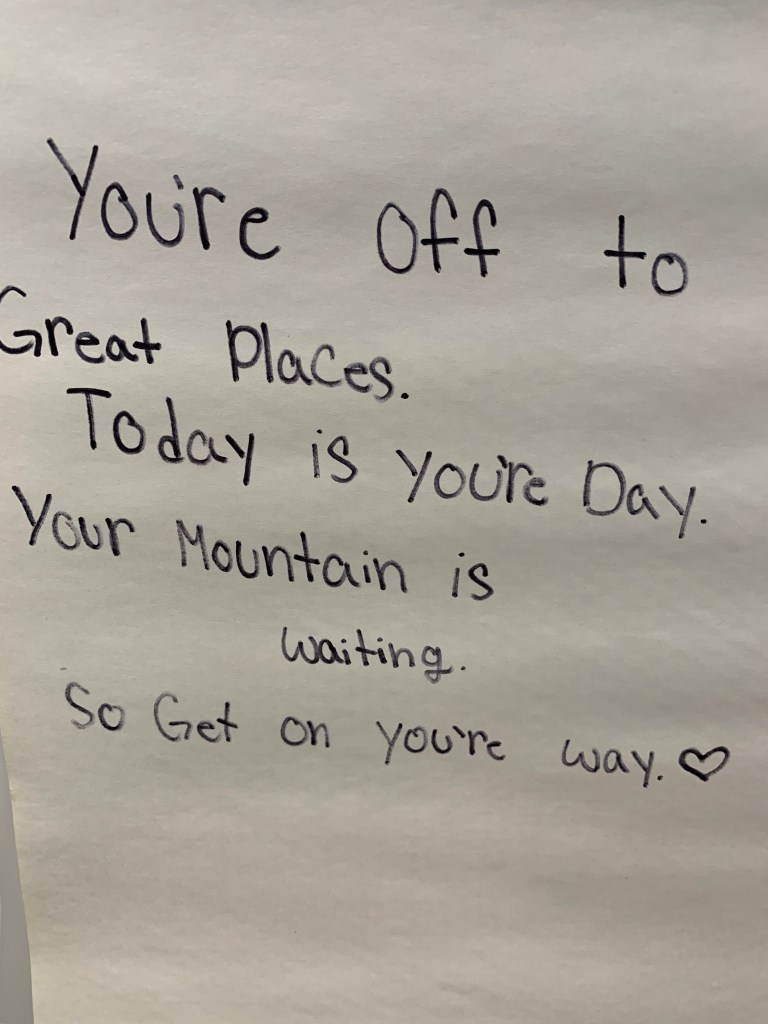 You're off to
Great Places.
Today is you're Day.
Your Mountain is
waiting.
So Get on you're way. ♡